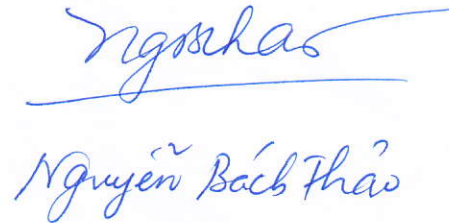 Nguyễn Bách Thảo